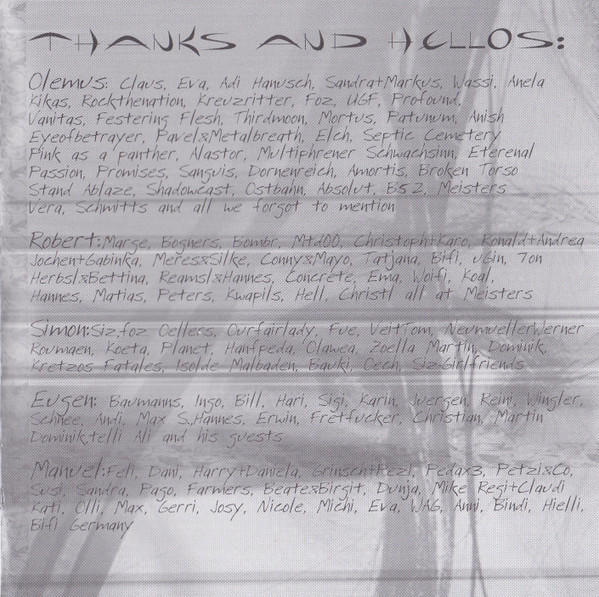 THANKS AND HELLOS:
Olemus: Claus, Eva, Adi Hanusch, Sandra+Markus, Wassi, Anela
Kikas, Rockthenation, Kreuzritter, Foz, UGF, Profound,
Vanitas, Festering Flesh, Thirdmoon, Mortus, Patunum, Anish
Eyeofbetrayer, Pavel&Metalbreath, Elch, Septic Cemetery
Pink as a panther, Alastor, Multiphrener Schwachsinn, Eterenal
Passion, Promises, Sanguis, Dornenreich, Amortis, Broken Torso
Stand Ablaze, Shadowcast, Ostbahn, Absolut, B52, Meisters
Vera, Schmitts and all we forgot to mention
Robert: Marge, Bogners, Bombr, Mtd00, Christoph+Karo, Ronald+Andrea
Jochen+Gabinka, Meres&Silke, Conny&Mayo, Tatjana, Bifi, uGin, 7on
Herbsl&Bettina, Reamsl&Hannes, Concrete, Ema, Wolfi, Koal,
Hannes, Matias, Peters, Kwapils, Hell, Christl all at Meisters
Simon: Siz, foz Oellers, Ourfairlady, Fue, VeitTom, NeumuellerWerner
Roumaen, Koeta, Planet, Hanfpeda, Olawea, Zoella Martin, Dominik,
Kretzos Fatales, Isolde Malbaden, Bauki, Cech, Siz-Girlfriends
Eugen: Baumanns, Ingo, Bill, Hari, Sigi, Karin, Juergen, Reini, Wingler,
Schnee, Andi, Max S., Hannes, Erwin, Fretfucker, Christian, Martin
Dominik, telli Ali and his guests
Manuel: Feli, Dani, Harry+Daniela, Grinsch+Rezl, Pedax3, Petzi&Co,
Susi, Sandra, Pago, Farmers, Beate&Birgit, Dunja, Mike Regi+Claudi
Kati, Olli, Max, Gerri, Josy, Nicole, Michi, Eva, WAG, Anni, Bindi, Hielli,
Bifi Germany